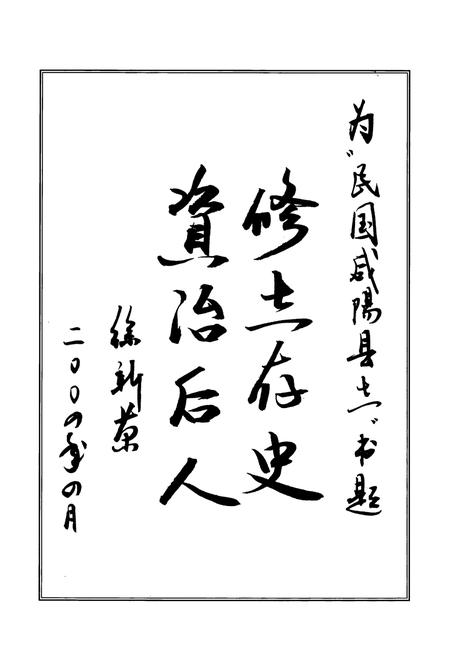 为“民国咸陽县志”书题
修志存史
資治后人
徐新荣
二〇〇四年四月